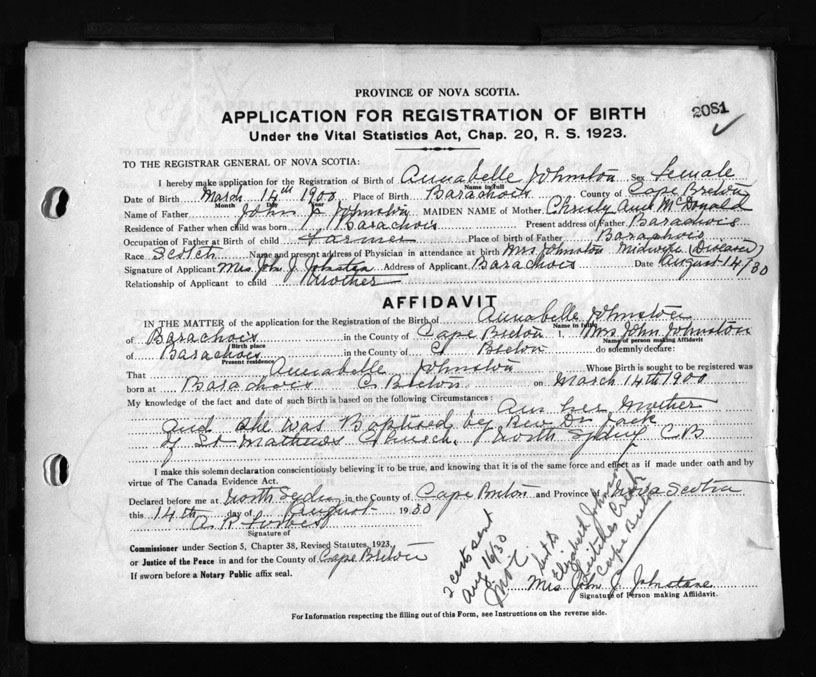 PROVINCE OF NOVA SCOTIA.
APPLICATION FOR REGISTRATION OF BIRTH
2081
Under the Vital Statistics Act, Chap. 20, R. S. 1923.
TO THE REGISTRAR GENERAL OF NOVA SCOTIA:
I hereby make application for the Registration of Birth of Annabelle Johnston Sex Female
Name in full
Date of Birth March 14th 1900 Place of Birth Barachois County of Cape Breton
Month Day Year
Name of Father John J Johnston MAIDEN NAME of Mother Christy Ann McDonald
Residence of Father when child was born Barachois Present address of Father Barachois
Occupation of Father at Birth of child Farmer Place of birth of Father Barachois
Race Scotch Name and present address of Physician in attendance at birth Mrs Johnston Midwife
Signature of Applicant Mrs John J. Johnston Address of Applicant Barachois Date August 14/30
Relationship of Applicant to child Mother
AFFIDAVIT
IN THE MATTER of the application for the Registration of the Birth of Annabelle Johnston
Name in full
of Barachois in the County of Cape Breton I, Mrs John Johnston
Birth place Name of person making Affidavit
of Barachois in the County of C Breton do solemnly declare:
Present residence
That Annabelle Johnston Whose Birth is sought to be registered was
born at Barachois C Breton on March 14th 1900
My knowledge of the fact and date of such Birth is based on the following Circumstances: Am her Mother
and she was Baptised by Rev Dr Jack
of St Mathews Church. North Sydney C B
I make this solemn declaration conscientiously believing it to be true, and knowing that it is of the same force and effect as if made under oath and by
virtue of The Canada Evidence Act.
Declared before me at North Sydney in the County of Cape Breton and Province of Nova Scotia
this 14th day of August 1930
A R Forbes
Signature of
Commissioner under Section 5, Chapter 38, Revised Statutes, 1923,
or Justice of the Peace in and for the County of Cape Breton
If sworn before a Notary Public affix seal.
2 certs sent
Aug 16/30
Elizabeth
Leitches Creek
Cape Breton
Mrs John J Johnstone
Signature of Person making Affidavit.
For Information respecting the filling out of this Form, see Instructions on the reverse side.